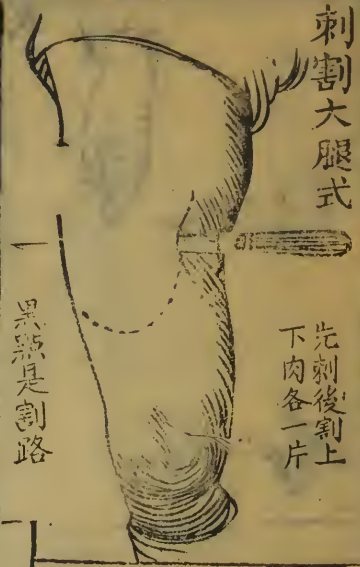 刺割大腿式
先刺後割上
下肉各一片
黑點是割路